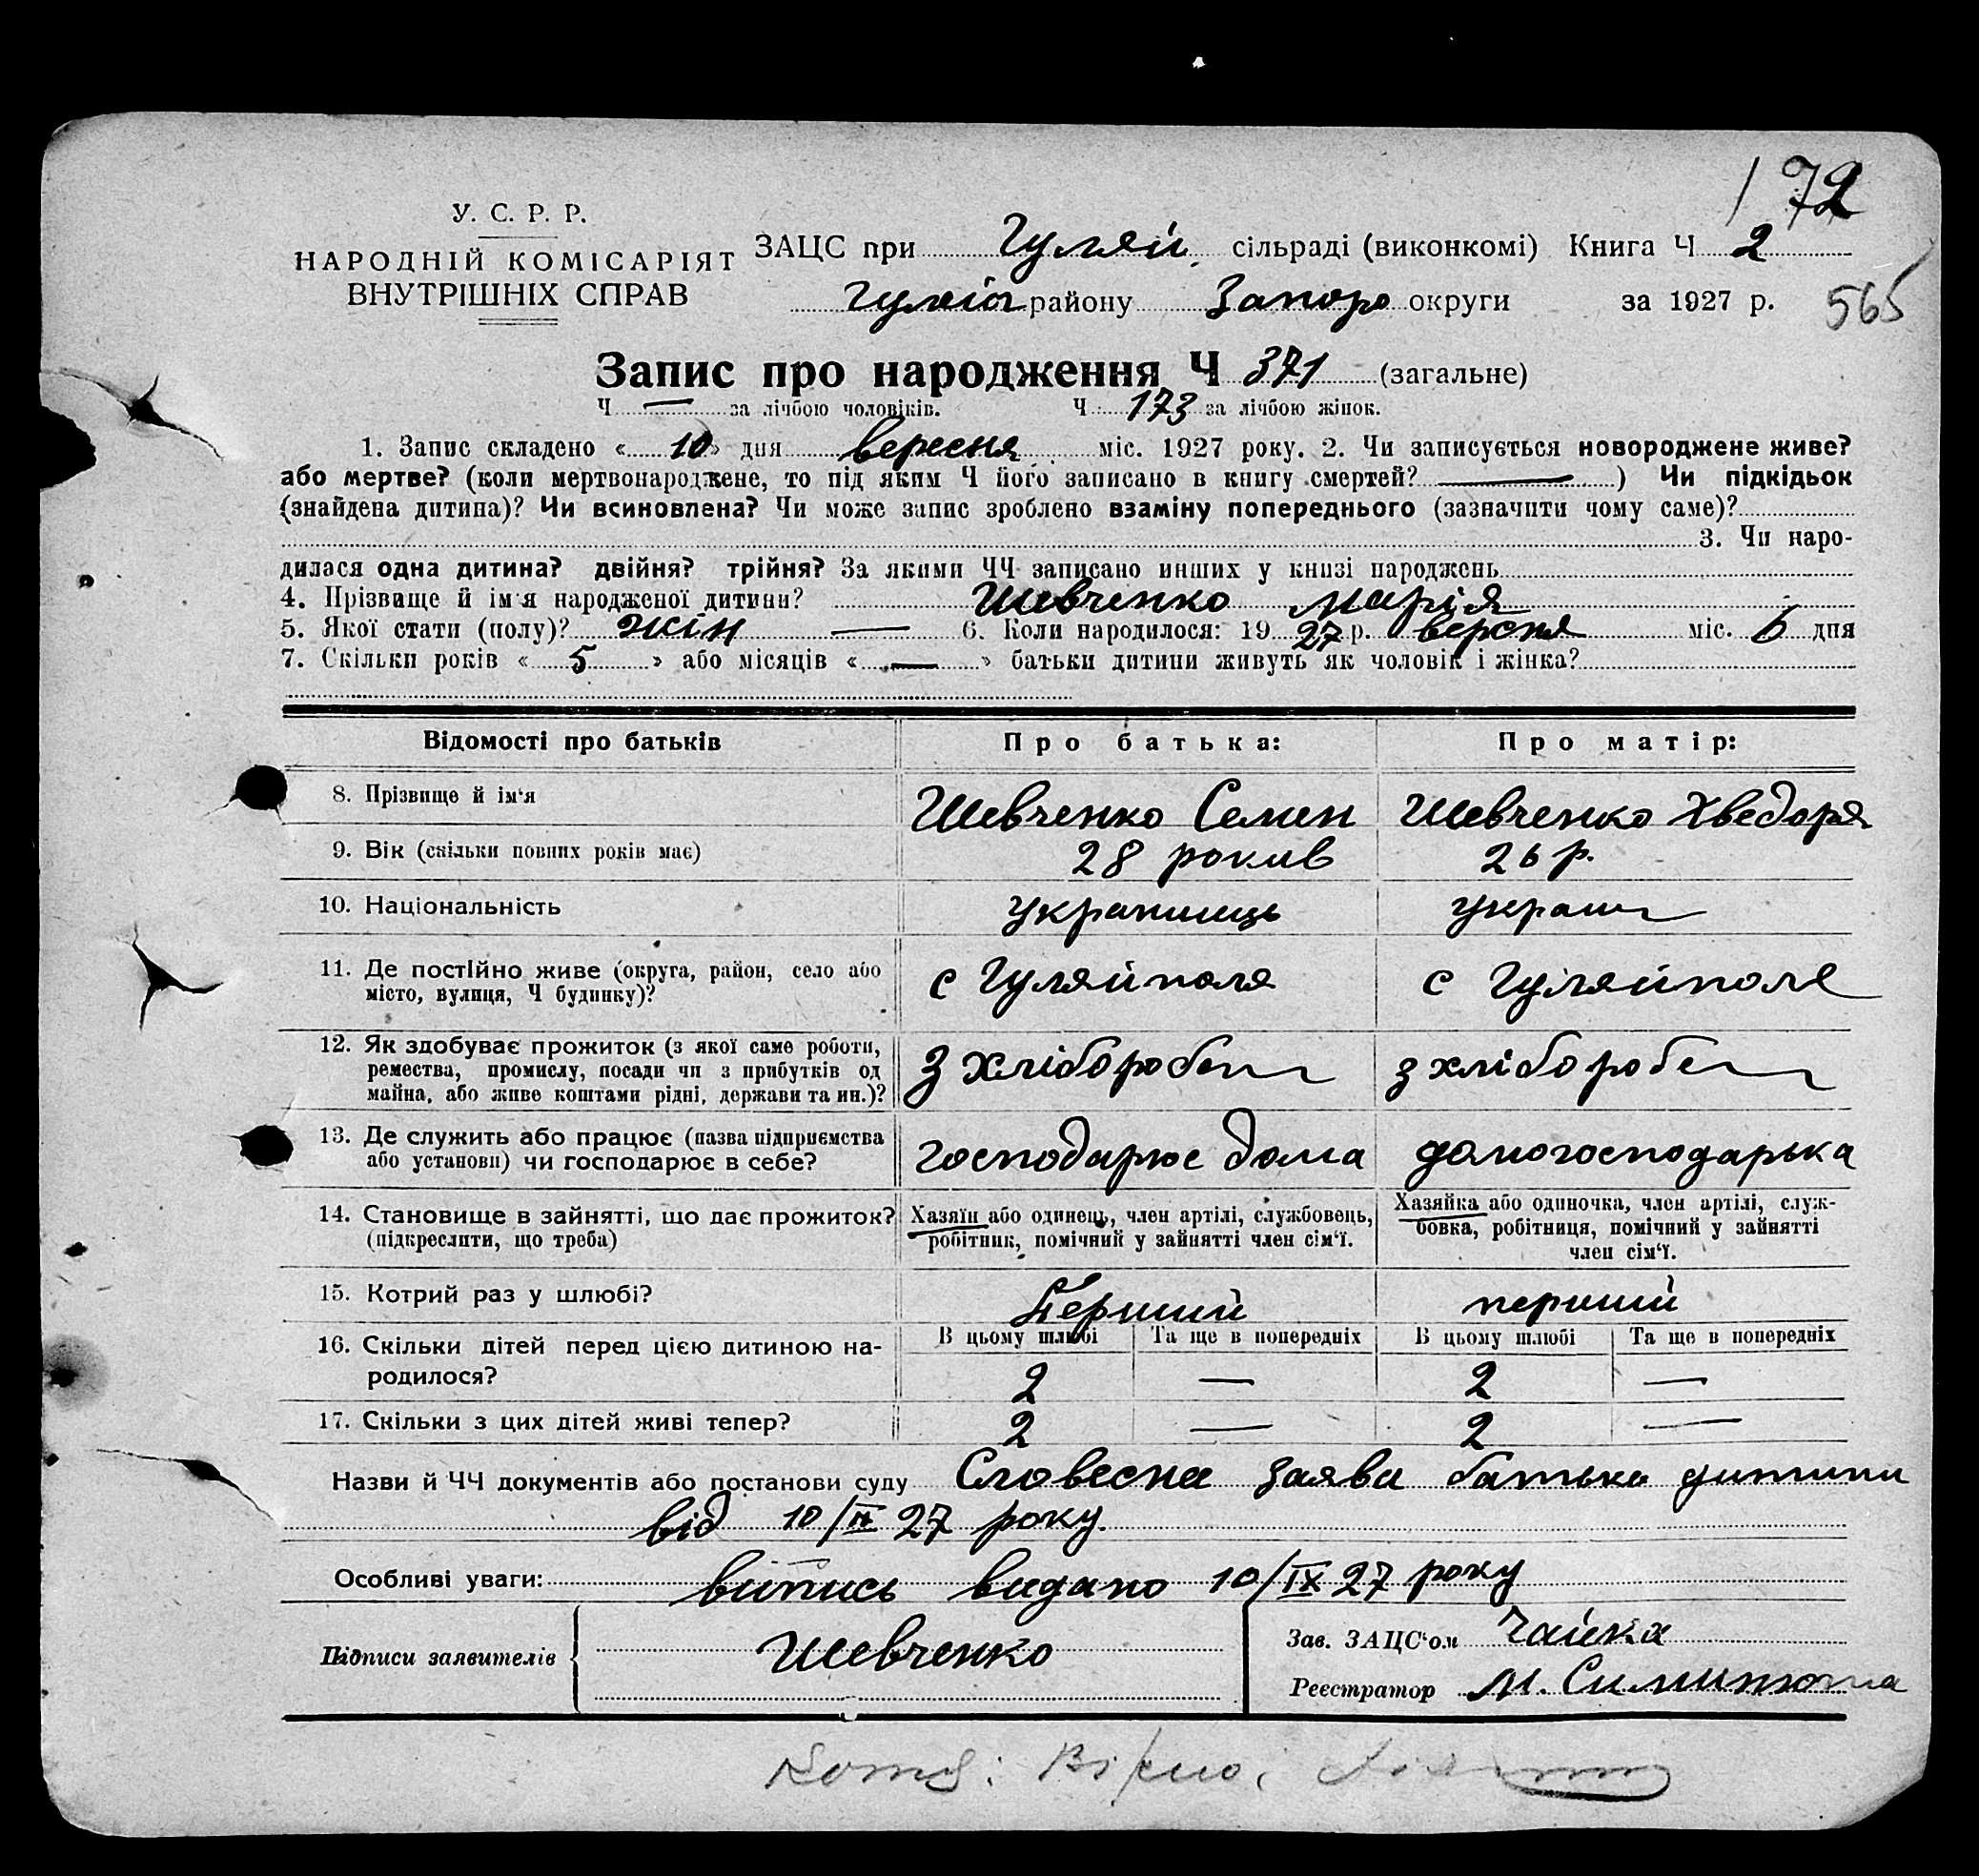 172
У. С. Р. Р.
НАРОДНІЙ КОМІСАРІЯТ
ВНУТРІШНІХ СПРАВ
ЗАЦС при Гуляй. сільраді (виконкомі) Книга Ч 2
району Запоро округи за 1927 р. 565
Запис про народження Ч 371 (загальне)
Ч — за лічбою чоловіків. Ч 173 за лічбою жінок.
1. Запис складено « 10 » дня вересня міс. 1927 року. 2. Чи записується новороджене живе?
або мертве? (коли мертвонароджене, то під яким Ч його записано в книгу смертей? — ) Чи підкідьок
(знайдена дитина)? Чи всиновлена? Чи може запис зроблено взаміну попереднього (зазначити чому саме)?
3. Чи наро-
дилася одна дитина? двійня? трійня? За якими ЧЧ записано инших у книзі народжень
4. Прізвище й ім'я народженої дитини? Шевченко Марія
5. Якої стати (полу)? жін — 6. Коли народилося: 19 27 р. вересня міс. 6 дня
7. Скільки років « 5 » або місяців « — » батьки дитини живуть як чоловік і жінка?
Відомості про батьків Про батька: Про матір:
8. Прізвище й ім'я Шевченко Семен Шевченко Хведоря
9. Вік (скільки повних років має) 28 рокив 26 р.
10. Національність Українець україн
11. Де постійно живе (округа, район, село або
місто, вулиця, Ч будинку)? с Гуляйполя с Гуляйполе
12. Як здобуває прожиток (з якої саме роботи,
ремества, промислу, посади чи з прибутків од
майна, або живе коштами рідні, держави та ин.)? З хлібороб з хлібороб
13. Де служить або працює (назва підприємства
або установи) чи господарює в себе? господарює дома домогосподарька
14. Становище в зайнятті, що дає прожиток?
(підкреслити, що треба)
Хазяїн або одинець, член артілі, службовець,
робітник, помічний у зайнятті член сім'ї.
Хазяйка або одиночка, член артілі, служ-
бовка, робітниця, помічний у зайнятті
член сім'ї.
15. Котрий раз у шлюбі? Перший перший
В цьому шлюбі Та ще в попередніх В цьому шлюбі Та ще в попередніх
16. Скільки дітей перед цією дитиною на-
родилося? 2 — 2 —
17. Скільки з цих дітей живі тепер? 2 — 2 —
Назви й ЧЧ документів або постанови суду Словесна заява батька дитини
від 10/IX 27 року.
Особливі уваги: витись видано 10/IX 27 року
Підписи заявителів Шевченко
Зав. ЗАЦС'ом Чайка
Реєстратор М.
Вірно